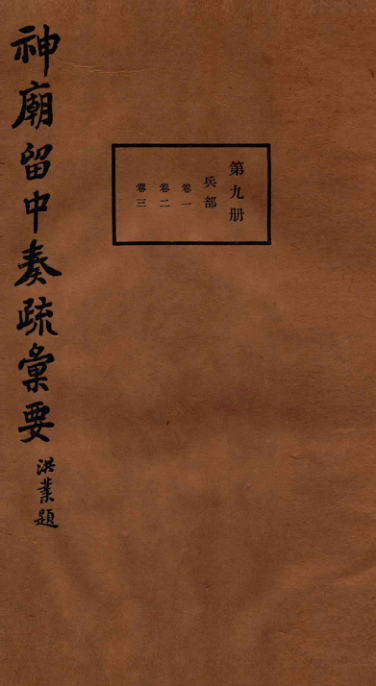 第九册
兵部
卷一
卷二
卷三
神廟留中奏疏彙要
洪業題